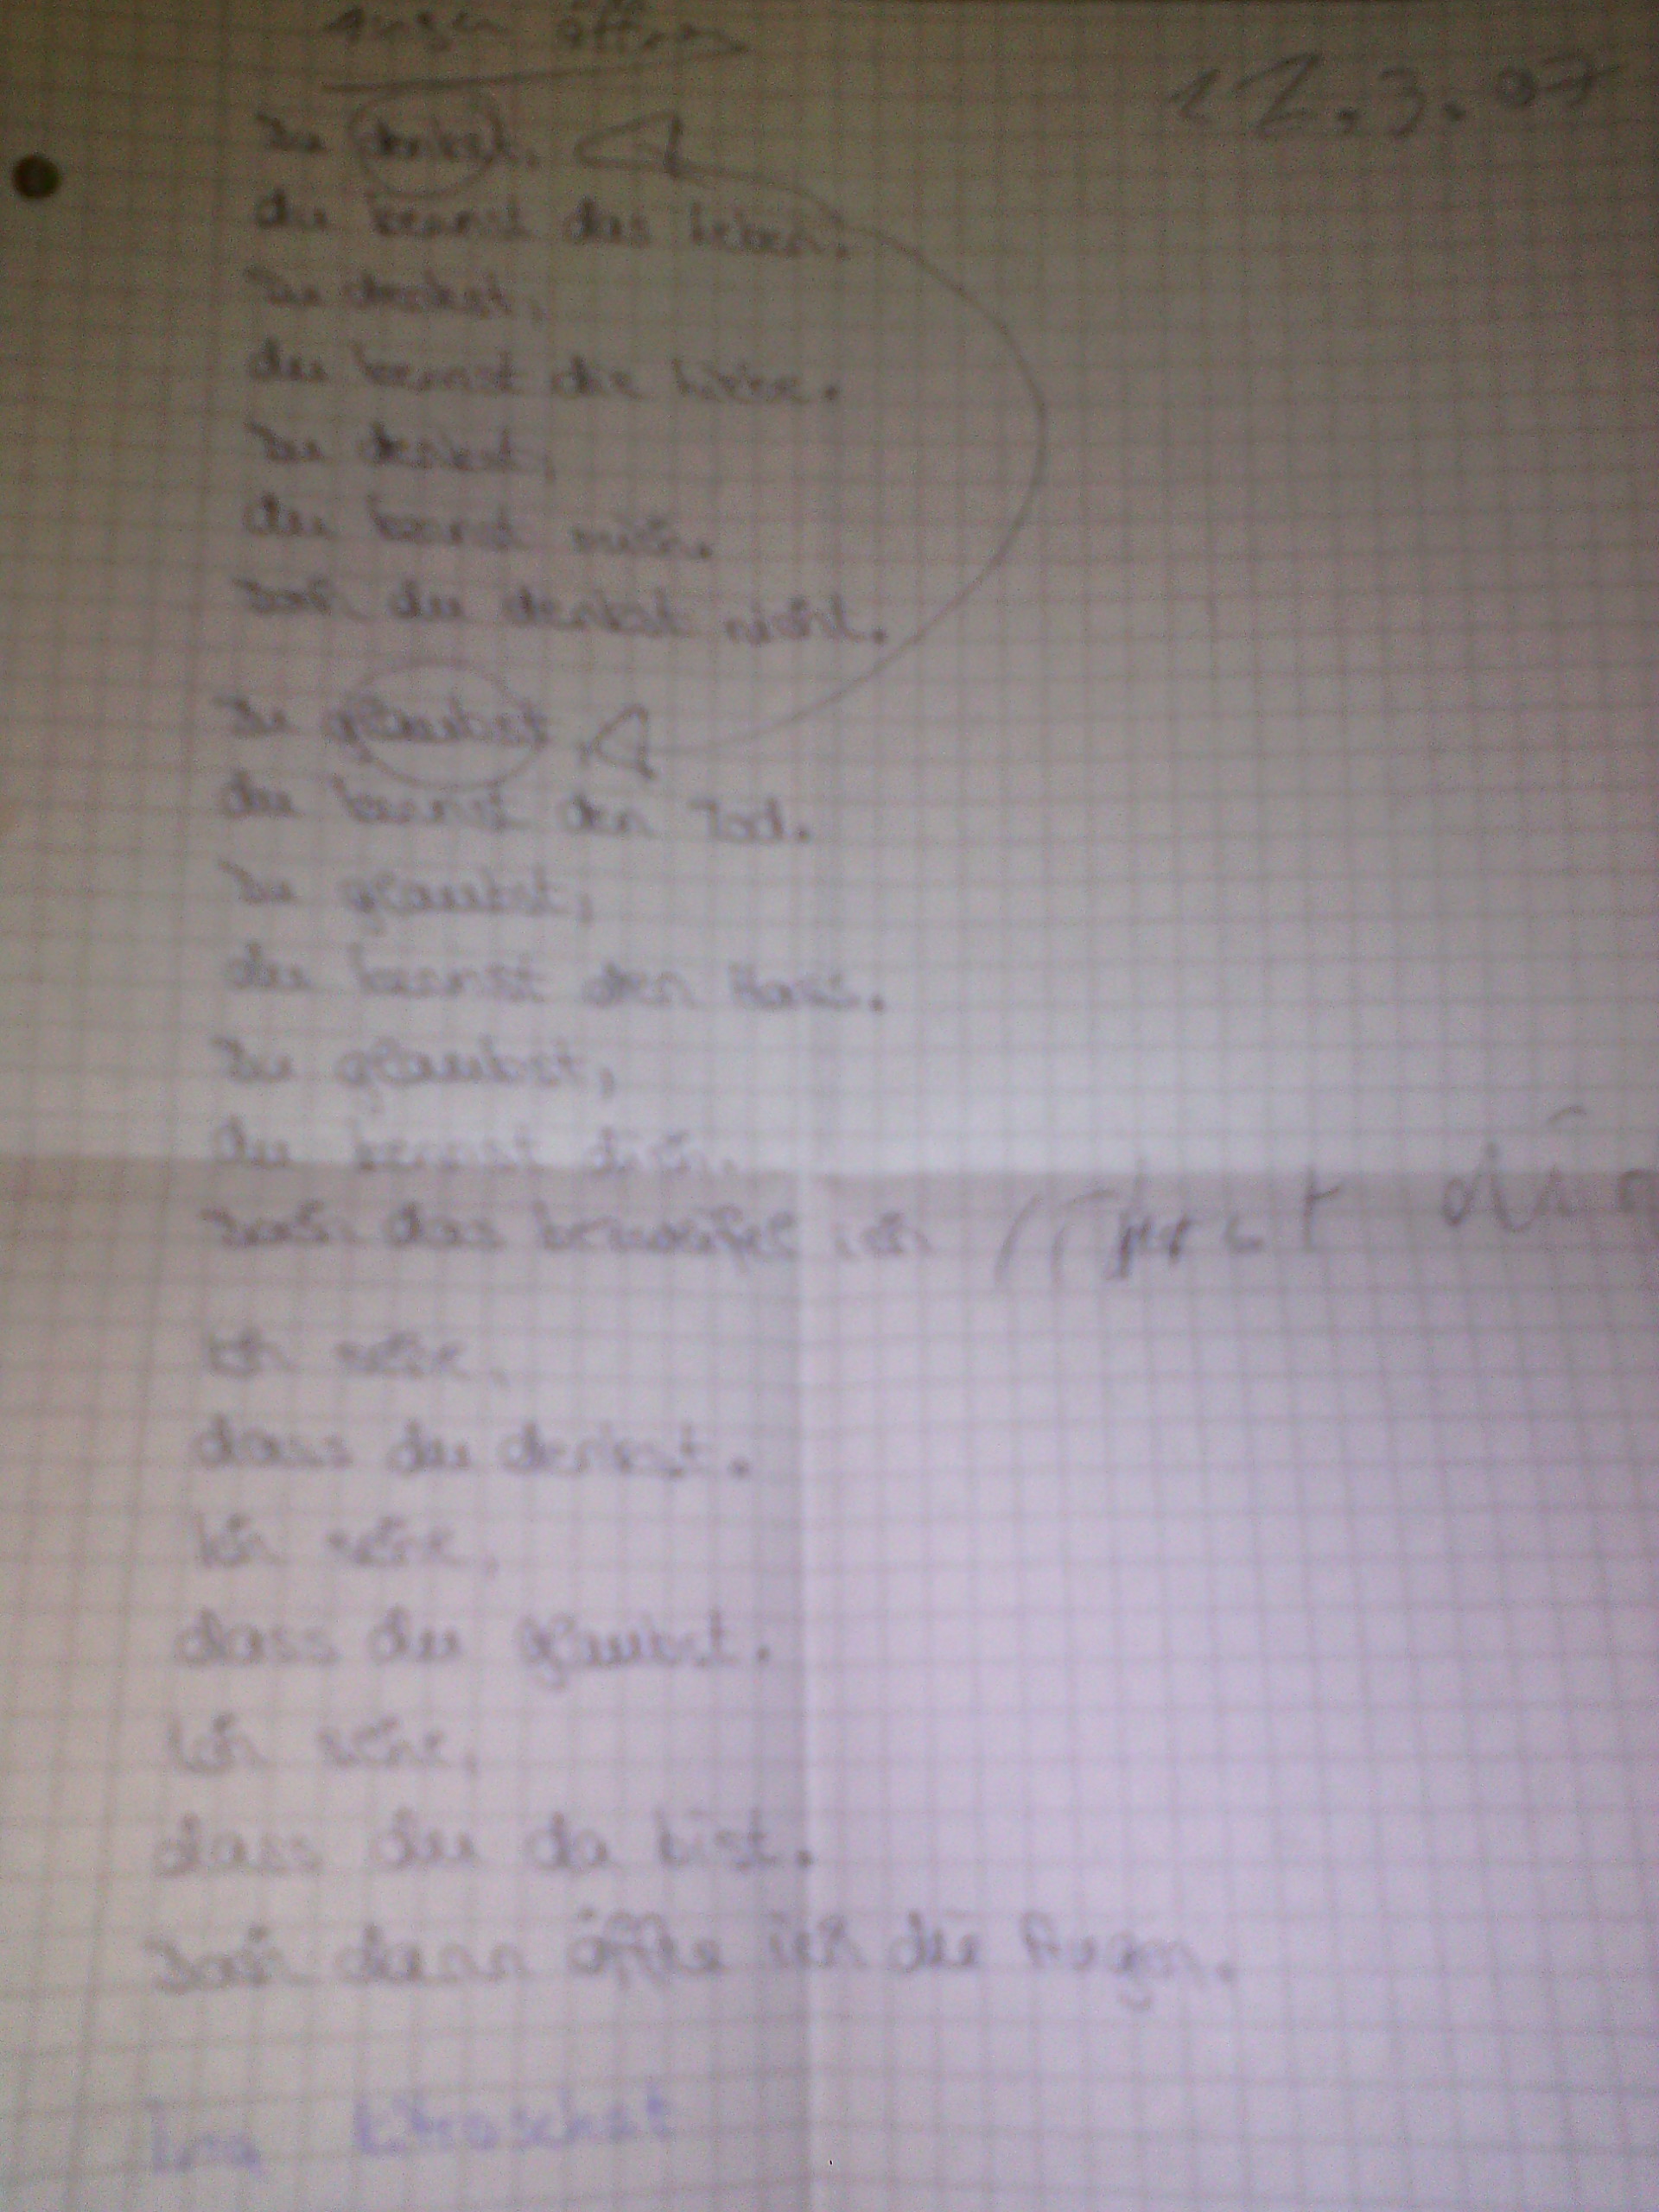 Augen öffnen
12.3.07
Du denkst,
du kennst das Leben.
Du denkst,
du kennst die Liebe.
Du denkst,
du kennst mich.
Doch du denkst nicht.
Du glaubst,
du kennst den Tod.
Du glaubst,
du kennst den Hass.
Du glaubst,
du kennst dich.
Doch das bezweifel ich
Ich sehe,
dass du denkst.
Ich sehe,
dass du glaubst.
Ich sehe,
dass du da bist.
Doch dann öffne ich die Augen.